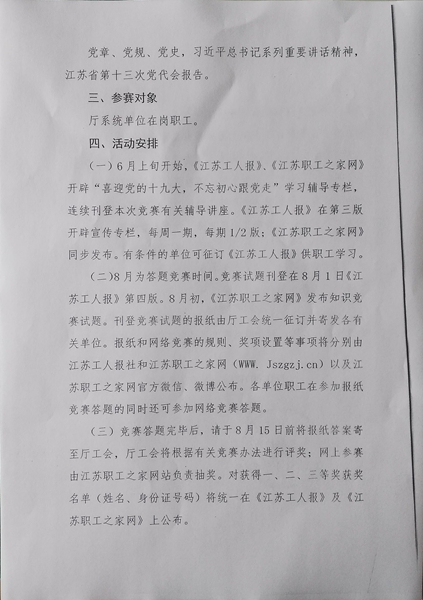 党章、党规、党史，习近平总书记系列重要讲话精神，
江苏省第十三次党代会报告。
三、参赛对象
厅系统单位在岗职工。
四、活动安排
（一）6月上旬开始，《江苏工人报》、《江苏职工之家网》
开辟“喜迎党的十九大，不忘初心跟党走”学习辅导专栏，
连续刊登本次竞赛有关辅导讲座。《江苏工人报》在第三版
开辟宣传专栏，每周一期，每期1/2版；《江苏职工之家网》
同步发布。有条件的单位可征订《江苏工人报》供职工学习。
（二）8月为答题竞赛时间。竞赛试题刊登在8月1日《江
苏工人报》第四版。8月初，《江苏职工之家网》发布知识竞
赛试题。刊登竞赛试题的报纸由厅工会统一征订并寄发各有
关单位。报纸和网络竞赛的规则、奖项设置等事项将分别由
江苏工人报社和江苏职工之家网（WWW. Jszgzj.cn）以及江
苏职工之家网官方微信、微博公布。各单位职工在参加报纸
竞赛答题的同时还可参加网络竞赛答题。
（三）竞赛答题完毕后，请于8月15日前将报纸答案寄
至厅工会，厅工会将根据有关竞赛办法进行评奖；网上参赛
由江苏职工之家网站负责抽奖。对获得一、二、三等奖获奖
名单（姓名、身份证号码）将统一在《江苏工人报》及《江
苏职工之家网》上公布。